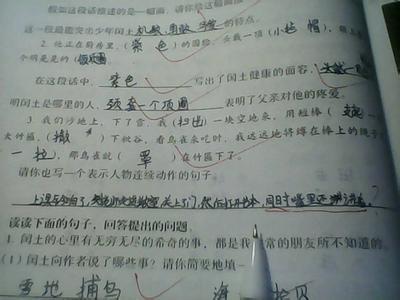 假如这段话描述的是一幅画,请你给这幅画
这一段最能突出少年闰土机敏、勇敢、的特点。
2. 他正在厨房里,(紫色)的圆脸,头戴一顶(小毡帽),颈上
个明晃晃的(银项圈)
在这段话中,紫色写出了闰土健康的面容,头戴一
明闰土是哪里的人,颈套一个项圈表明了父亲对他的疼爱。
3. 我们沙地上,下了雪,我(扫出)一块空地来,用短棒(支起)一
大竹匾,(撒)下秕谷,看鸟雀来吃时,我远远地将缚在棒上的绳子
一拉,那鸟雀就(罩)在竹匾下了。
请你也写一个表示人物连续动作的句子。
上课
同时嘴里还
读读下面的句子,回答提出的问题。
1. 闰土的心里有无穷无尽的希奇的事,都是我常的朋友所不知道的。
(1) 闰土向作者说了哪些事?请你简要地填
雪地捕鸟 海 拾贝